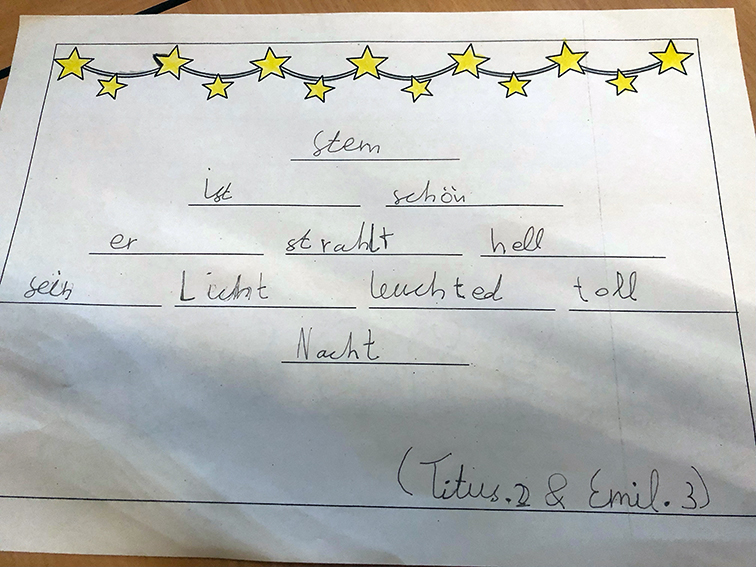 stern
ist schön
er strahlt hell
sein Licht leuchted toll
Nacht
(Titus.2 & Emil.3)